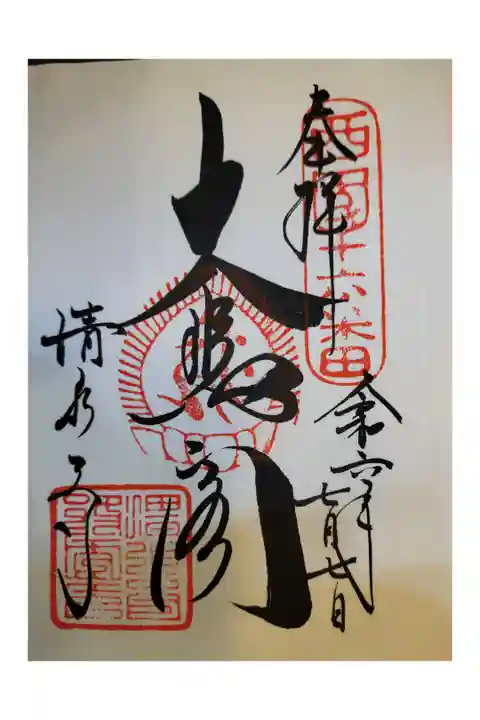 奉拝
西国十六番
令和六年
七月七日
大悲閣
清水寺